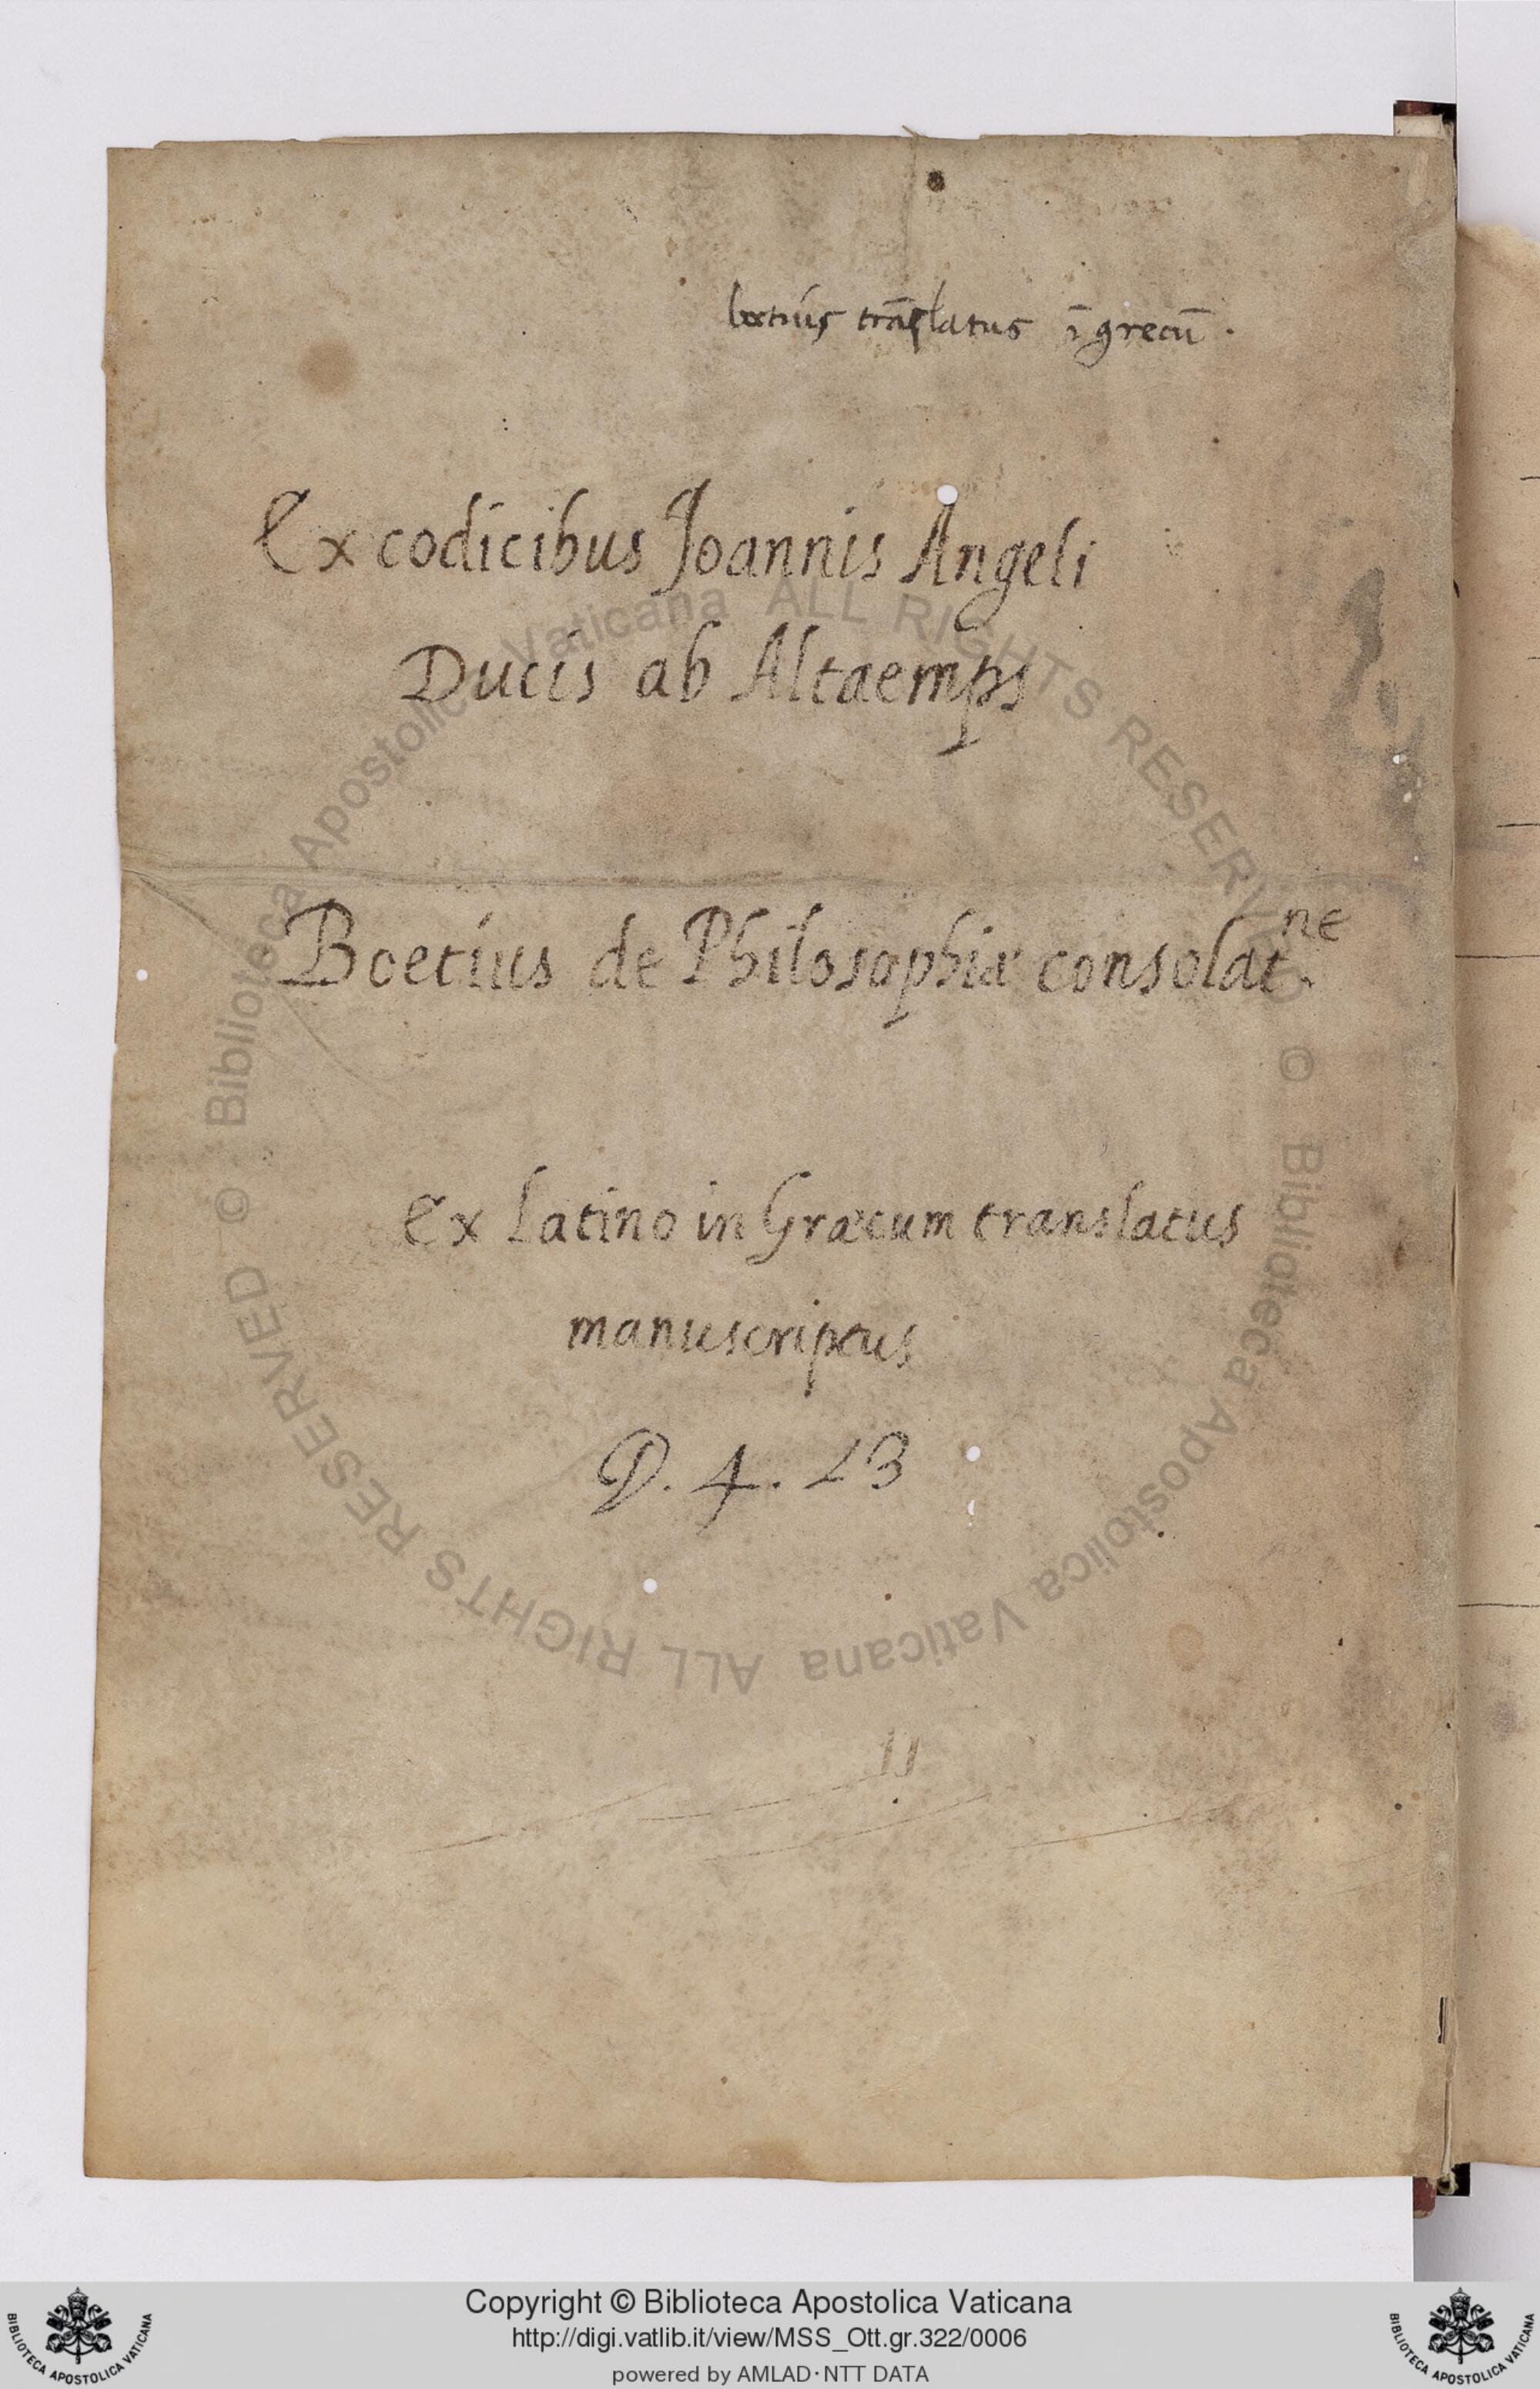 boetius trāslatus ī grecū.
Ex codicibus Joannis Angeli
Ducis ab Altaemps
Boetius de Philosophiæ consolat.ne
Ex Latino in Græcum translatus
manuscriptus
D. 4. 13
© Biblioteca Apostolica Vaticana ALL RIGHTS RESERVED © Biblioteca Apostolica Vaticana ALL RIGHTS RESERVED
Copyright © Biblioteca Apostolica Vaticana
http://digi.vatlib.it/view/MSS_Ott.gr.322/0006
powered by AMLAD·NTT DATA
BIBLIOTECA APOSTOLICA VATICANA
BIBLIOTECA APOSTOLICA VATICANA